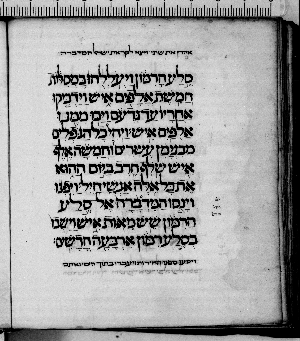 סלע הרמון ויעללהו במסלות
חמשת אלפים איש וידביקו
אחריו עד גדעם ויכו ממנו
אלפים איש ויהי כל הנפלים
מבנימן עשרים וחמשה אלף
איש שלף חרב ביום ההוא
את כל אלה אנשי חיל ויפנו
וינסו המדברה אל סלע
הרמון שש מאות איש וישבו
בסלע רמון ארבעה חדשים